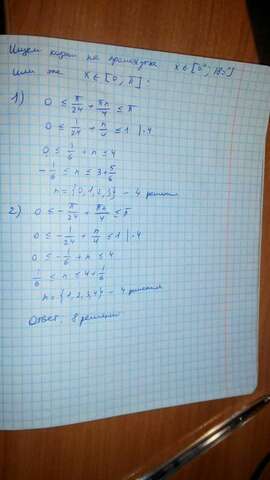 Ищем корни на промежутке x ∈ [0°; 180°]
или же x ∈ [0, π].
1)
0 ≤ π/24 + πn/4 ≤ π
0 ≤ 1/24 + n/4 ≤ 1 | ·4
0 ≤ 1/6 + n ≤ 4
-1/6 ≤ n ≤ 3 + 5/6
n = {0, 1, 2, 3} – 4 решения
2)
0 ≤ -π/24 + πn/4 ≤ π
0 ≤ -1/24 + n/4 ≤ 1 | ·4
0 ≤ -1/6 + n ≤ 4
1/6 ≤ n ≤ 4 + 1/6
n = {1, 2, 3, 4} – 4 решения
Ответ. 8 решений